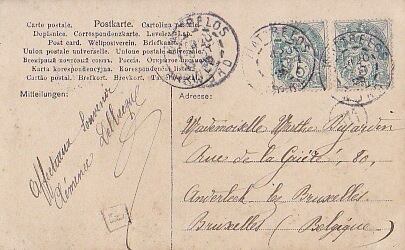 Carte postale. Postkarte. Cartolina postale
Dopisnice. Correspondenzkarte. Levelező-Lap.
Post card. Weltpostverein. Briefkaart.
Union postale universelle. Unione postale universale.
Всемірный почтовый союзъ. Россія.
Karta korespondencyjna. Korespondenční lístek.
Cartão postal. Brefkort. Brevkort.
Mitteilungen:
Adresse:
Affectueux Souvenir
Clémence
Mademoiselle Marthe Dujardin
Rue de la Gaîté, 80,
Anderlech lez Bruxelles
Bruxelles (Belgique)